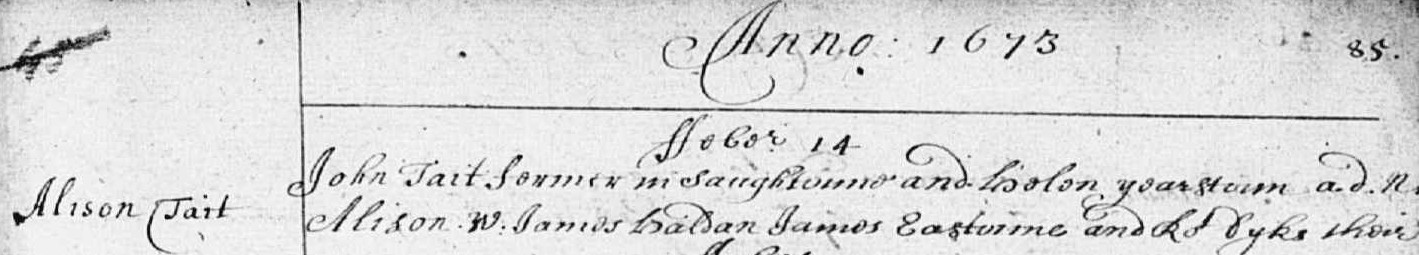 Anno: 1673 85.
ffeber 14
Alison Tait
John Tait fermer in Saughtoune and Helen yearstoun a.d. n.
Alison. W: James Haldan James Eastoune and Ro Dyks their